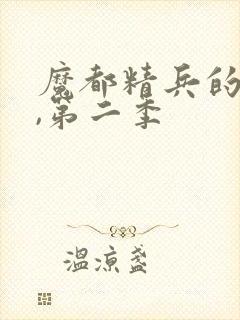 魔都精兵的
,第二季
温凉盏